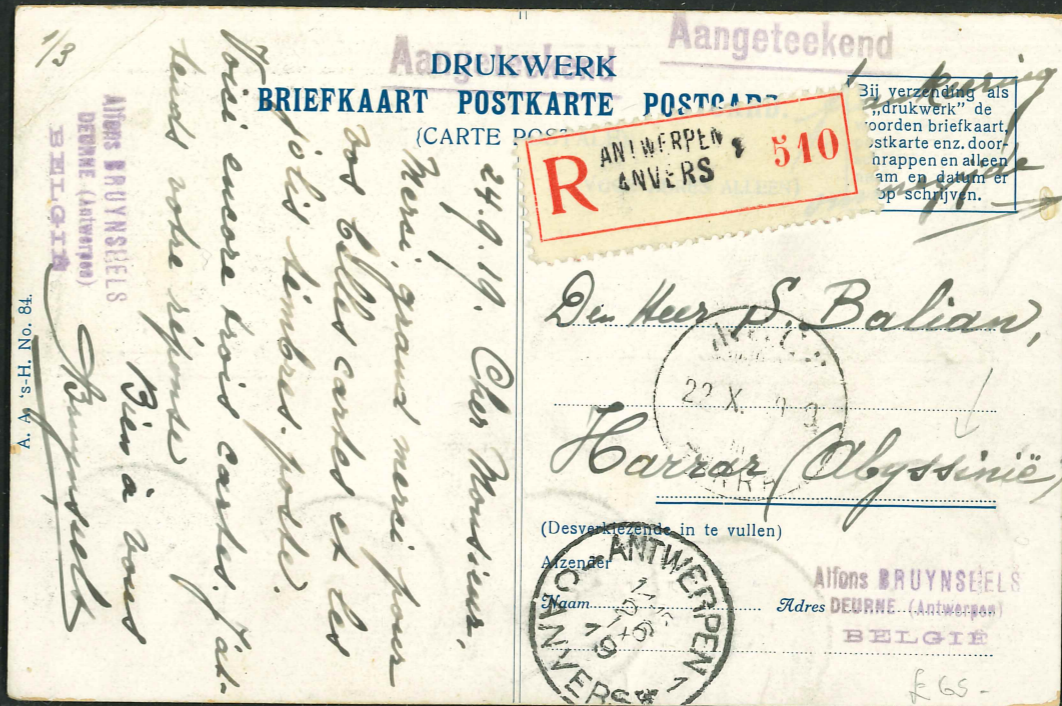 Aangeteekend
Aangeteekend
DRUKWERK
BRIEFKAART POSTKARTE POSTCARD
(CARTE POSTALE
Bij verzending als
„drukwerk" de
woorden briefkaart,
postkarte enz. door-
schrappen en alleen
naam en datum er
op schrijven.
R
ANTWERPEN
ANVERS
510
1/3
Alfons BRUYNSEELS
DEURNE (Antwerpen)
BELGIE
A. A. 's-H. No. 84.
24.9.19. Cher Monsieur,
Merci, grand merci pour
vos belles cartes et les
jolis timbres-poste.
Voici encore trois cartes. J'at-
tends votre réponse
Bien à vous
ABruynseels
Den Heer S. Balian,
Harrar (Abyssinië)
22 X
HARRAR
(Desverkiezende in te vullen)
Afzender
Naam
Adres
Alfons BRUYNSEELS
DEURNE (Antwerpen)
BELGIË
ANTWERPEN 1
ANVERS
19
£65-